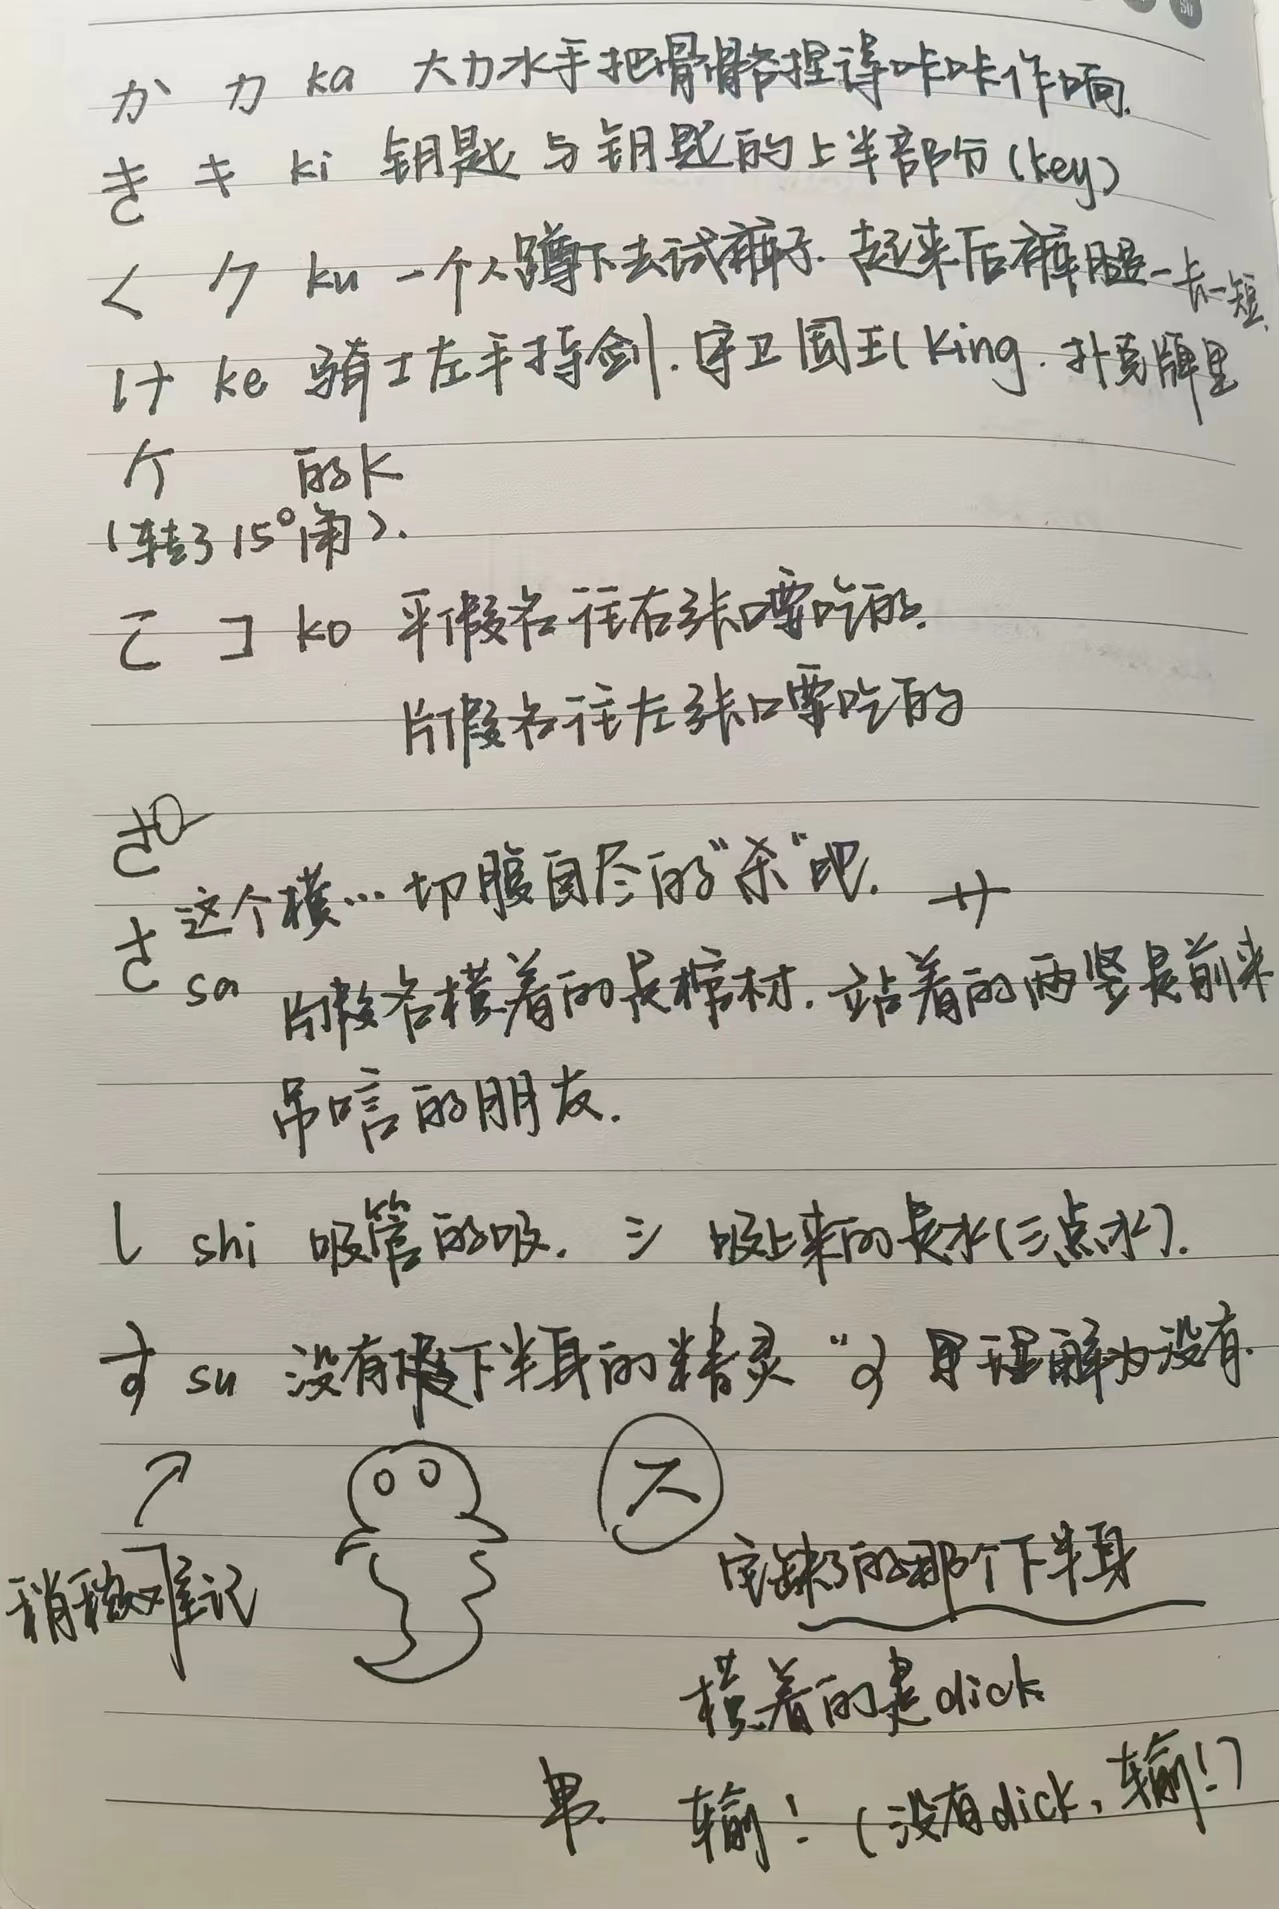 か カ ka 大力水手把骨骼捏得咔咔作响.
き キ ki 钥匙与钥匙的上半部分(key)
く ク ku 一个人蹲下去试裤子.起来后裤腿一长一短.
け ke 骑士左手持剑.守卫国王(King.扑克牌里
ケ 的K
(转了15°角).
こ コ ko 平假名往右张口要吃的.
片假名往左张口要吃的
さ
这个横…切腹自尽的"杀"吧. サ
さ sa 片假名横着的是棺材.站着的两竖是前来
吊唁的朋友.
し shi 吸管的吸. シ 吸上来的是水(三点水).
す su 没有下半身的精灵 "
理解为没有.
ス
稍微难记
它缺了的那个下半身
横着的是dick
输!(没有dick,输!)